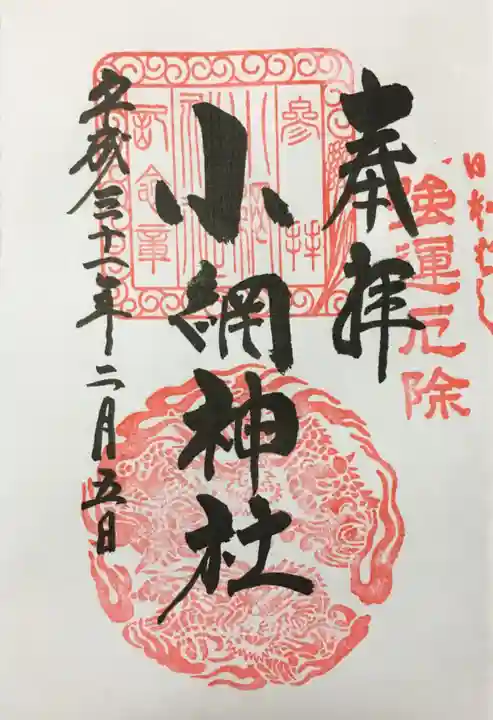 強運厄除
奉拝
小網神社
平成三十一年二月五日
参拝
記念章